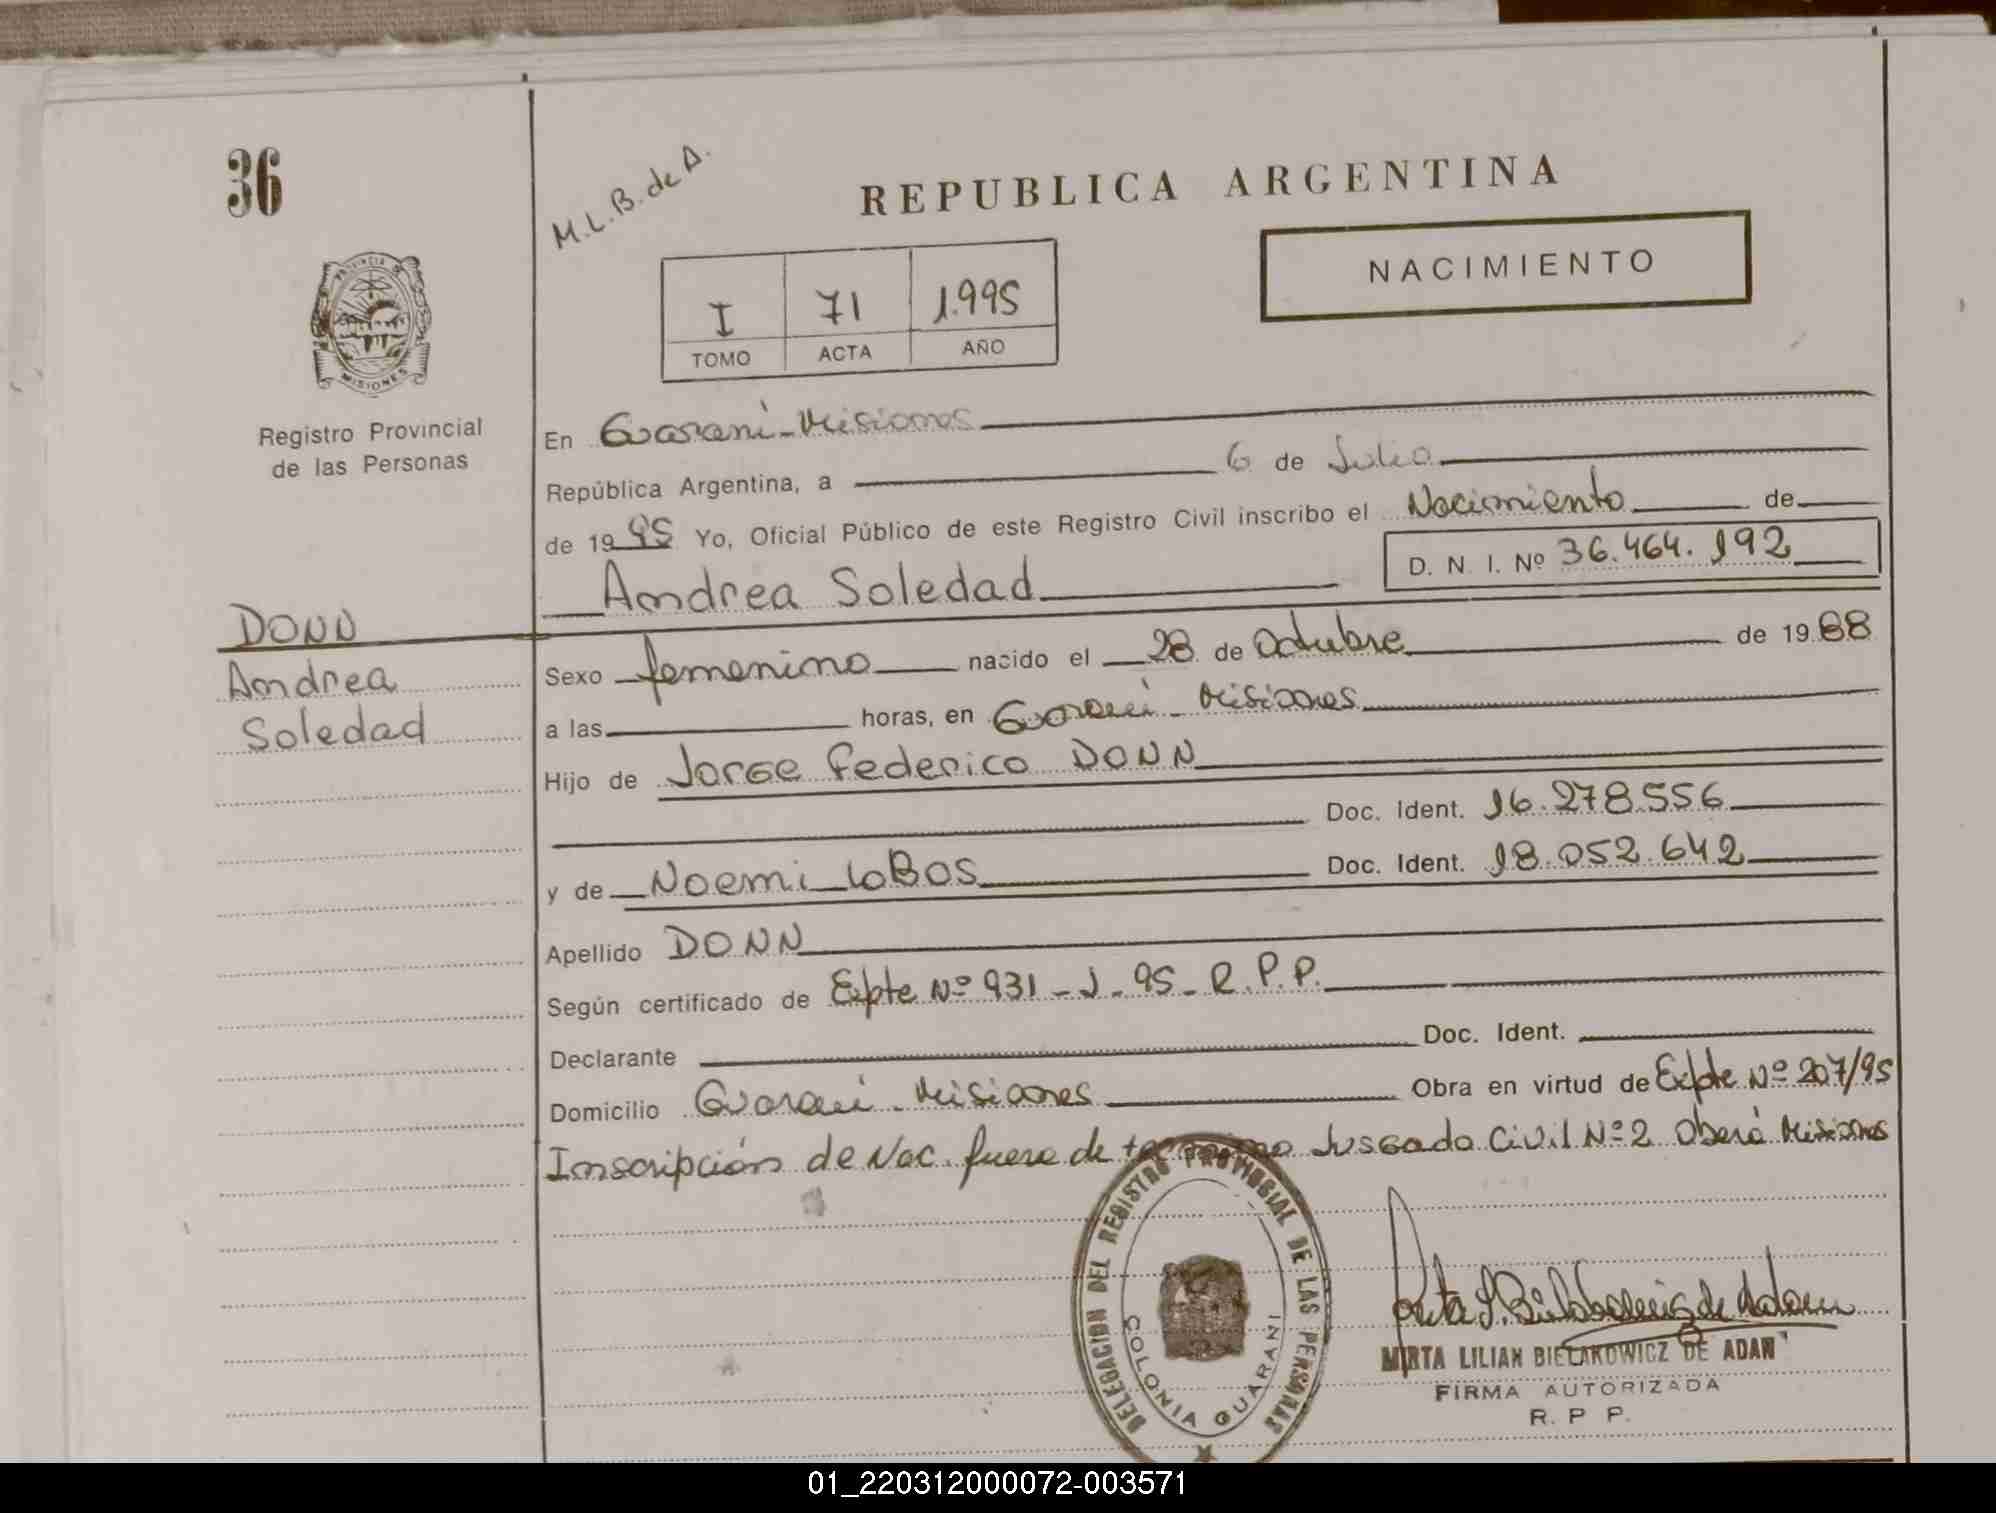 36
M.L.B. de A.
REPUBLICA ARGENTINA
NACIMIENTO
I 71 1.995
TOMO ACTA AÑO
PROVINCIA DE
MISIONES
Registro Provincial
de las Personas
En Guaraní - Misiones
República Argentina, a 6 de Julio
de 1995 Yo, Oficial Público de este Registro Civil inscribo el Nacimiento de
D. N. I. Nº 36.464.192
Andrea Soledad
DONN
Andrea
Soledad
Sexo femenino nacido el 28 de Octubre de 1988
a las horas, en Guaraní - Misiones
Hijo de Jorge Federico DONN
Doc. Ident. 16.278.556
y de Noemi LOBOS Doc. Ident. 18.052.642
Apellido DONN
Según certificado de Expte Nº 931 - J - 95 - R.P.P.
Declarante Doc. Ident.
Domicilio Guaraní - Misiones Obra en virtud de Expte Nº 207/95
Inscripción de Nac. fuera de termino Jusgado Civil Nº 2 Oberá Misiones
DELEGACION DEL REGISTRO PROVINCIAL DE LAS PERSONAS
COLONIA GUARANI
MIRTA LILIAN BIELAKOWICZ DE ADAM
FIRMA AUTORIZADA
R. P. P.
01_220312000072-003571